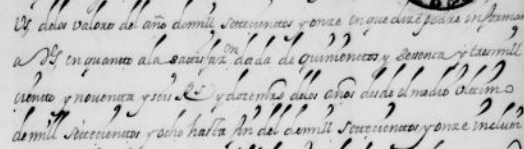 Vs, delos valores del año demill settecientos y onze en que dize podra informar
a VS, en quanto ala satisfazⁿ dada de quinientos y setenta y tresmill
ciento y noventa y seis Rs y dozemrs delos años desde el medio ultimo
demill settecientos y ocho hasta fin del demill settecientos y onze inclusi